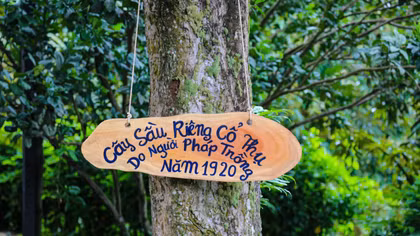 Cây Sầu Riêng Cổ Thụ
Do Người Pháp Trồng
Năm 1920